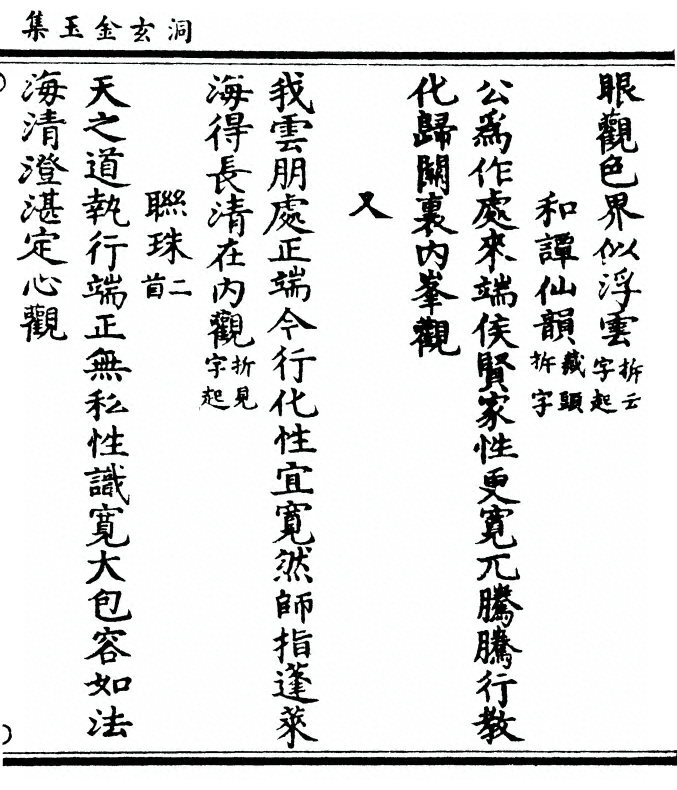 洞玄金玉集
眼觀色界似浮雲拆云字起
和譚仙韻藏頭拆字
公爲作處來端俟賢家性更寬兀騰騰行教
化歸關裏内峯觀
又
我雲朋處正端令行化性宜寬然師指蓬萊
海得長清在内觀折見字起
聯珠二首
天之道執行端正無私性識寬大包容如法
海清澄湛定心觀